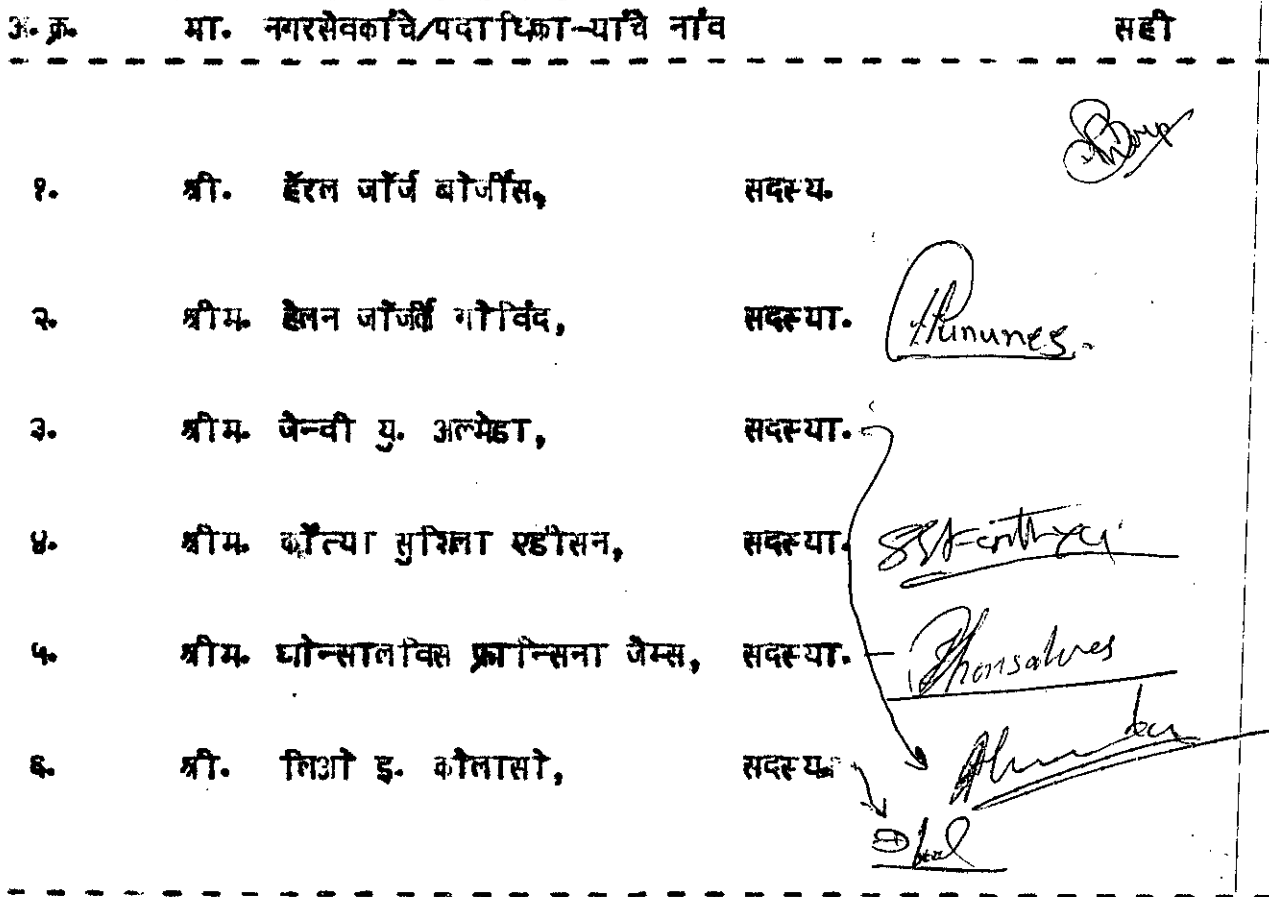 अ.क्र. मा. नगरसेवकांचे/पदाधिका-यांचे नांव सही
१. श्री. हॅरल जॉर्ज बोर्जीस, सदस्य.
२. श्रीम. हेलन जॉर्जी गोविंद, सदस्या. Hununes.
३. श्रीम. जेन्वी यु. अल्मेडा, सदस्या.
४. श्रीम. कॉत्या सुशिला एडीसन, सदस्या
५. श्रीम. घोन्सालविस फ्रान्सिना जेम्स, सदस्या. Ghonsalves
६. श्री. लिओ इ. कोलासो, सदस्य.